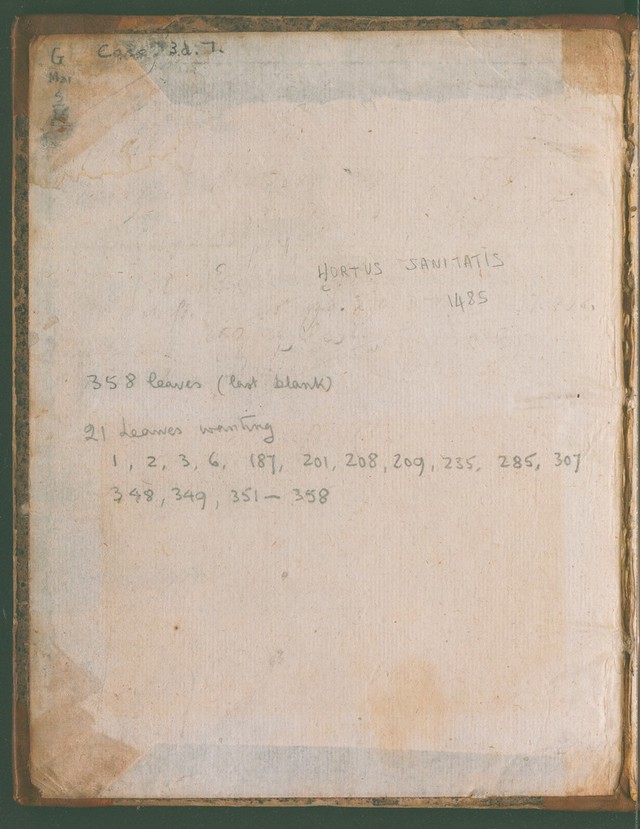 G Case 3d. 7.
HORTUS SANITATIS
1485
358 leaves (last blank)
21 leaves wanting
1, 2, 3, 6, 187, 201, 208, 209, 235, 285, 307
348, 349, 351 - 358